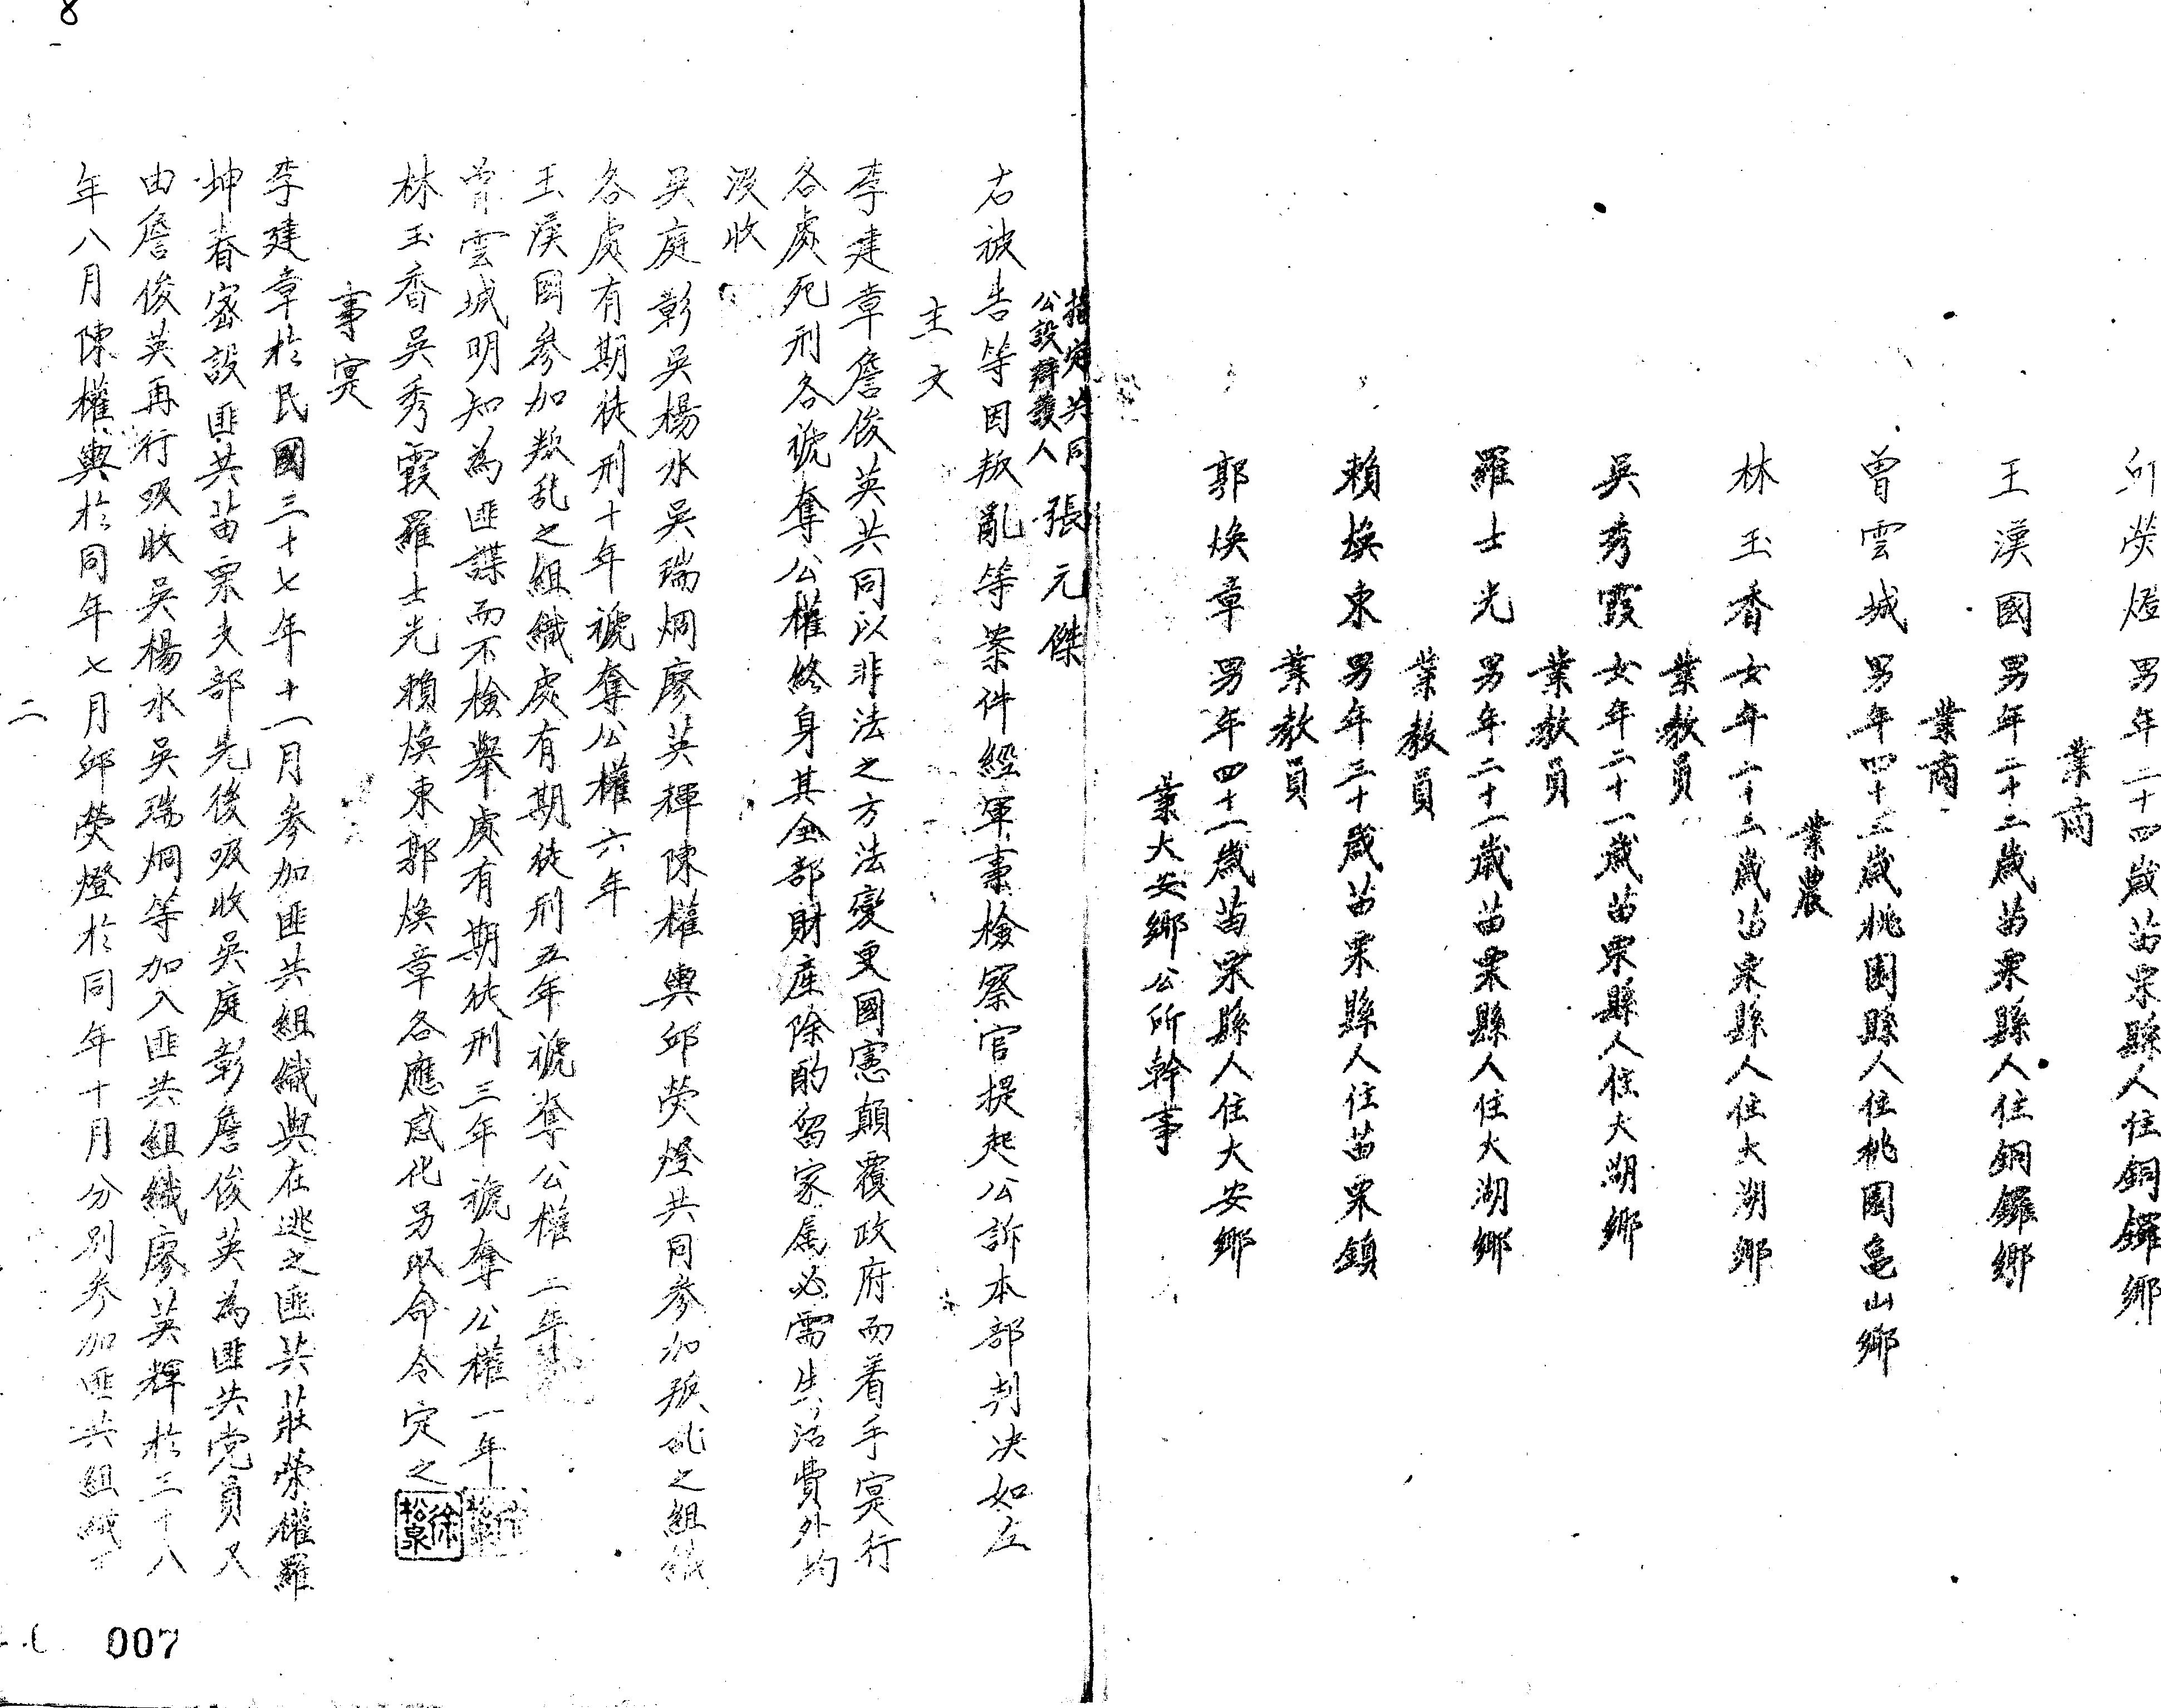 邱熒燈 男年二十四歲苗栗縣人住銅鑼鄉
業商
王漢國 男年二十二歲苗栗縣人住銅鑼鄉
業商
曾雲城 男年四十三歲桃園縣人住桃園亀山鄉
業農
林玉香 女年二十三歲苗栗縣人住大湖鄉
業教員
吳秀霞 女年二十一歲苗栗縣人住大湖鄉
業教員
羅士光 男年二十一歲苗栗縣人住大湖鄉
業教員
賴煥東 男年三十歲苗栗縣人住苗栗鎮
業教員
郭煥章 男年四十二歲苗栗縣人住大安鄉
業大安鄉公所幹事
指定共同
公設辯護人 張元傑
右被告等因叛亂等案件經軍事檢察官提起公訴本部判決如左
主文
李建章詹俊英共同以非法之方法變更國憲顛覆政府而着手寔行
各處死刑各褫奪公權終身其全部財產除酌留家属必需生活費外均
沒收
吳庭彰吳楊水吳瑞烱廖英輝陳權興邱熒燈共同參加叛乱之組織
各處有期徒刑十年褫奪公權六年
王漢國參加叛乱之組織處有期徒刑五年褫奪公權二年
曾雲城明知為匪諜而不檢舉處有期徒刑三年褫奪公權一年
林玉香吳秀霞羅士光賴煥東郭煥章各應感化另以命令定之
徐松泉
事寔
李建章於民國三十七年十一月參加匪共組織與在逃之匪共莊榮權羅
坤春密設匪共苗栗支部先後吸收吳庭彰詹俊英為匪共党員又
由詹俊英再行吸收吳楊水吳瑞烱等加入匪共組織廖英輝於三十八
年八月陳權興於同年七月邱熒燈於同年十月分別參加匪共組織
二
007
8